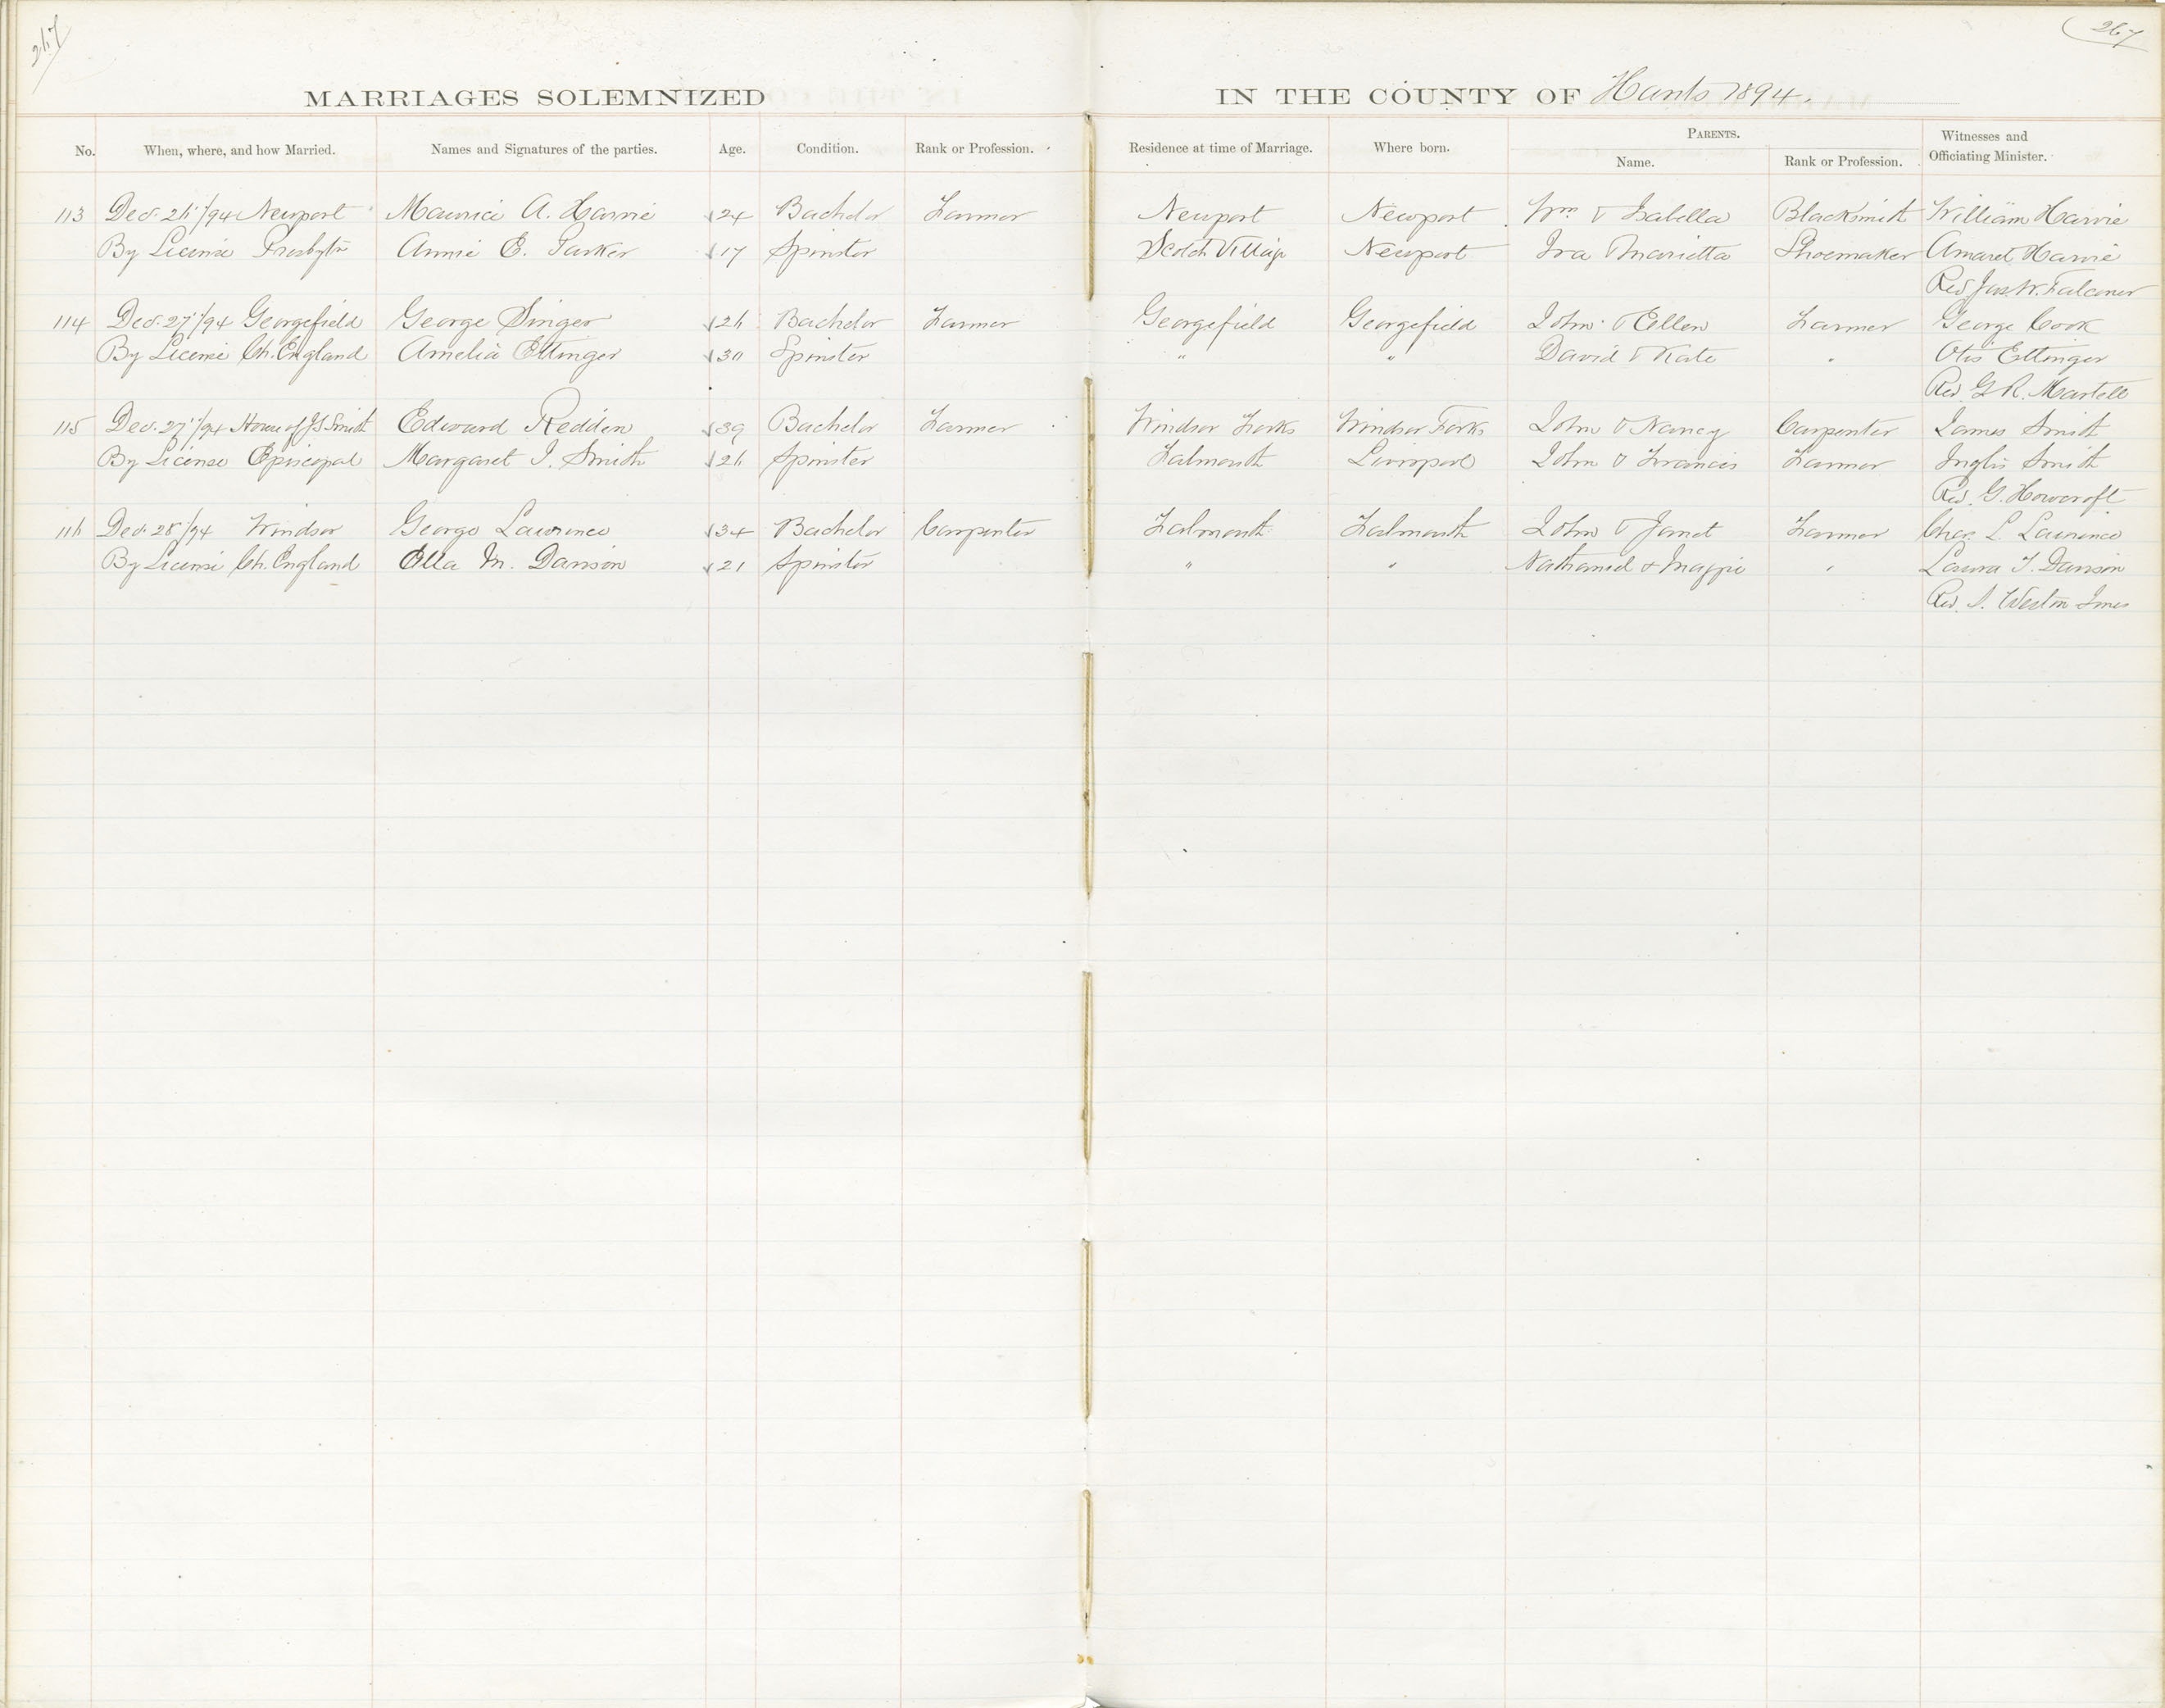 267
267
MARRIAGES SOLEMNIZED IN THE COUNTY OF Hants 1894.
No. When, where, and how Married. Names and Signatures of the parties. Age. Condition. Rank or Profession. Residence at time of Marriage. Where born. PARENTS. Name. Rank or Profession. Witnesses and Officiating Minister.
113 Dec. 26/94 Newport Maurice A. Harvie 24 Bachelor Farmer Newport Newport Wm & Isabella Blacksmith William Harvie
By License Presbytn Annie E. Parker 17 Spinster Scotch Village Newport Ira & Marietta Shoemaker Amaret Harvie
Rev Jas. W. Falconer
114 Dec. 27/94 Georgefield George Singer 26 Bachelor Farmer Georgefield Georgefield John & Ellen Farmer George Cook
By License Ch. England Amelia Ettinger 30 Spinster " " David & Kate " Otis Ettinger
Rev. G. R. Martell
115 Dec. 27/94 House of J S Smith Edward Redden 39 Bachelor Farmer Windsor Forks Windsor Forks John & Nancy Carpenter James Smith
By License Episcopal Margaret I. Smith 26 Spinster Falmouth Liverpool John & Francis Farmer Inglis Smith
Rev. G. Howcroft
116 Dec. 28/94 Windsor George Lawrence 34 Bachelor Carpenter Falmouth Falmouth John & Janet Farmer Chas. L. Lawrence
By License Ch. England Ella M. Davison 21 Spinster " " Nathaniel & Maggie " Laura T. Davison
Rev. J. Weston Jones